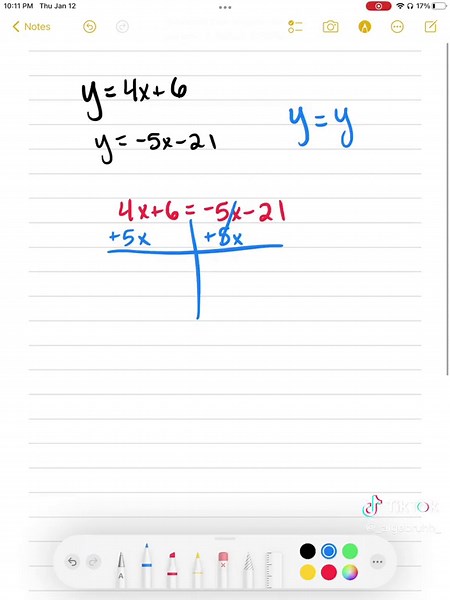 10:11 PM Thu Jan 12
17%
Notes
y = 4x + 6
y = -5x - 21
y = y
4x + 6 = -5x - 21
+5x +5x
TikTok
A